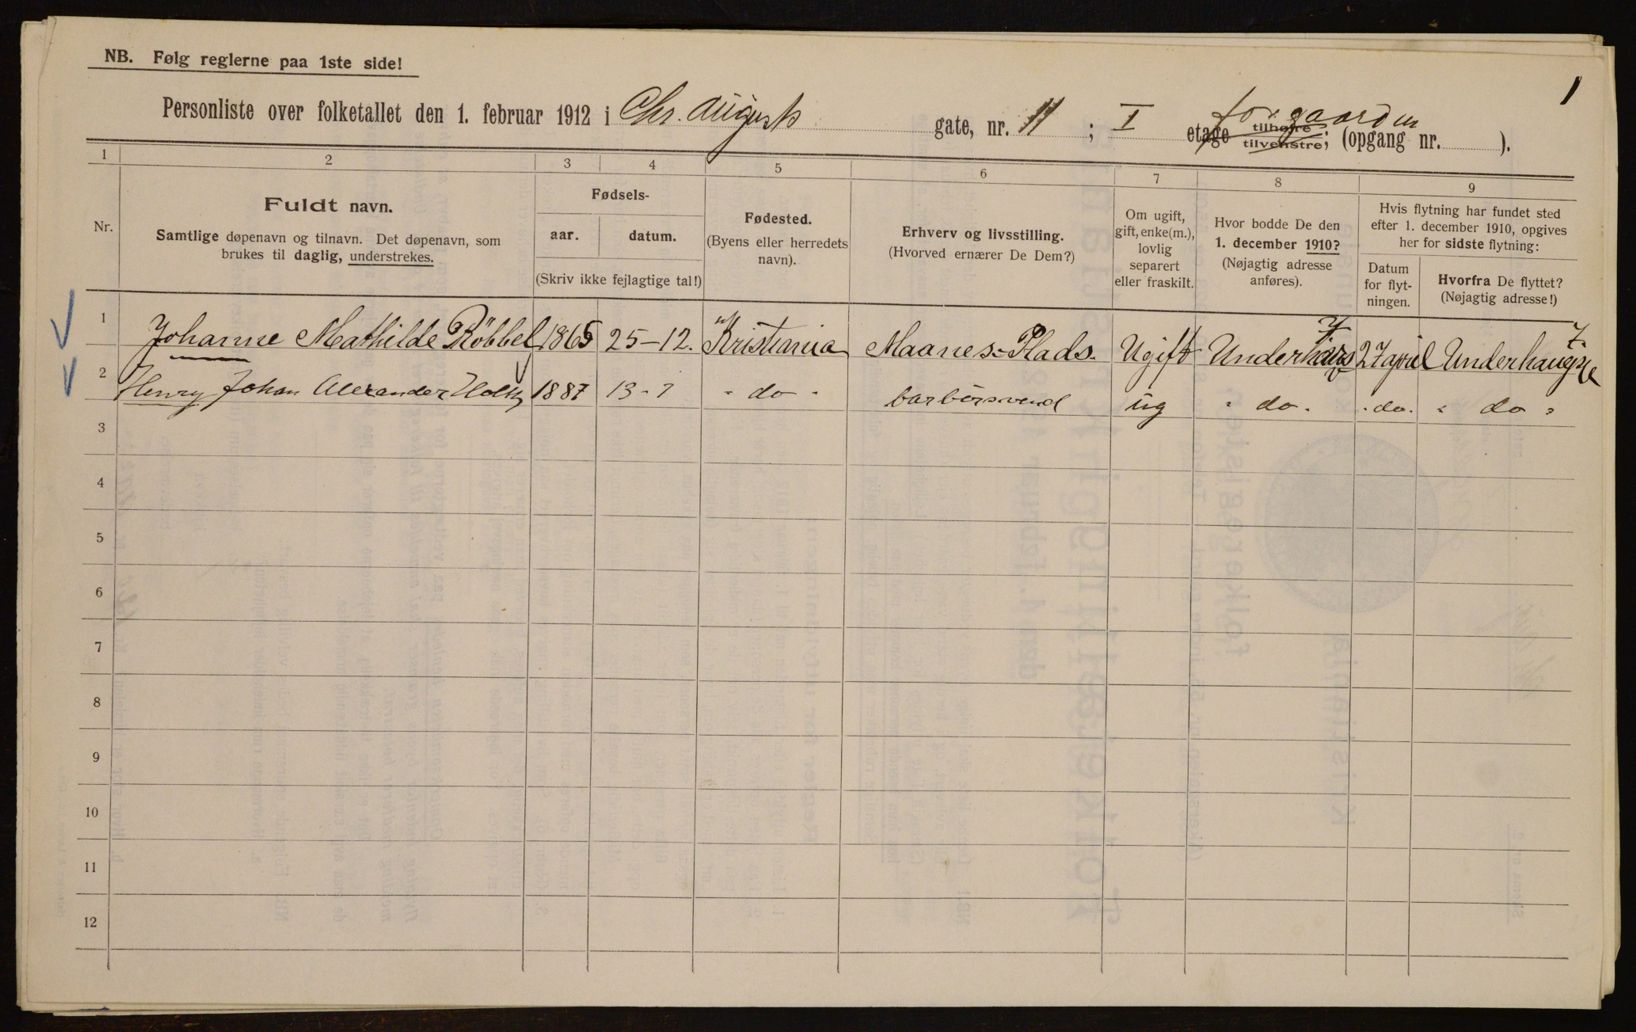 NB. Følg reglerne paa 1ste side!
1
Personliste over folketallet den 1. februar 1912 i Chr. Augusts gate, nr. 11 ; I etage forgaarden tilhøire, tilvenstre, (opgang nr. ).
1 2 3 4 5 6 7 8 9
Nr.
Fuldt navn.
Samtlige døpenavn og tilnavn. Det døpenavn, som
brukes til daglig, understrekes.
Fødsels-
aar. datum.
(Skriv ikke fejlagtige tal!)
Fødested.
(Byens eller herredets
navn).
Erhverv og livsstilling.
(Hvorved ernærer De Dem?)
Om ugift,
gift, enke(m.),
lovlig
separert
eller fraskilt.
Hvor bodde De den
1. december 1910?
(Nøjagtig adresse
anføres).
Hvis flytning har fundet sted
efter 1. december 1910, opgives
her for sidste flytning:
Datum
for flyt-
ningen.
Hvorfra De flyttet?
(Nøjagtig adresse!)
1 Johanne Mathilde Röbbel 1865 25-12. Kristiania Maanes-Plads. Ugift 27 april
2 Henry Johan Alexander Holtz 1887 13-7 " do " barbersvend ug " do. . do. " do "
3
4
5
6
7
8
9
10
11
12